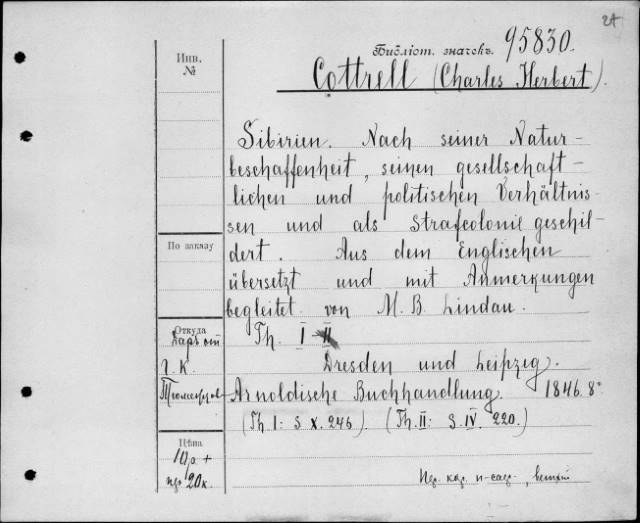 24
Библіот. значекъ. 95830.
Инв.
№
Cottrell (Charles Herbert).
Sibirien. Nach seiner Natur-
beschaffenheit, seinen gesellschaft-
lichen und politischen Verhältnis-
sen und als Strafcolonie geschil-
По заказу
dert. Aus dem Englischen
übersetzt und mit Anmerkungen
begleitet von M. B. Lindau.
Откуда
Даръ от
Th. I-II
Г. К.
Dresden und Leipzig.
Тюменцов
Arnoldische Buchhandlung. 1846. 8°
(Th. I: S. X. 246). (Th. II: S. IV. 220.)
Цѣна
10 р. +
пер. 20 к.
Пер. кор.